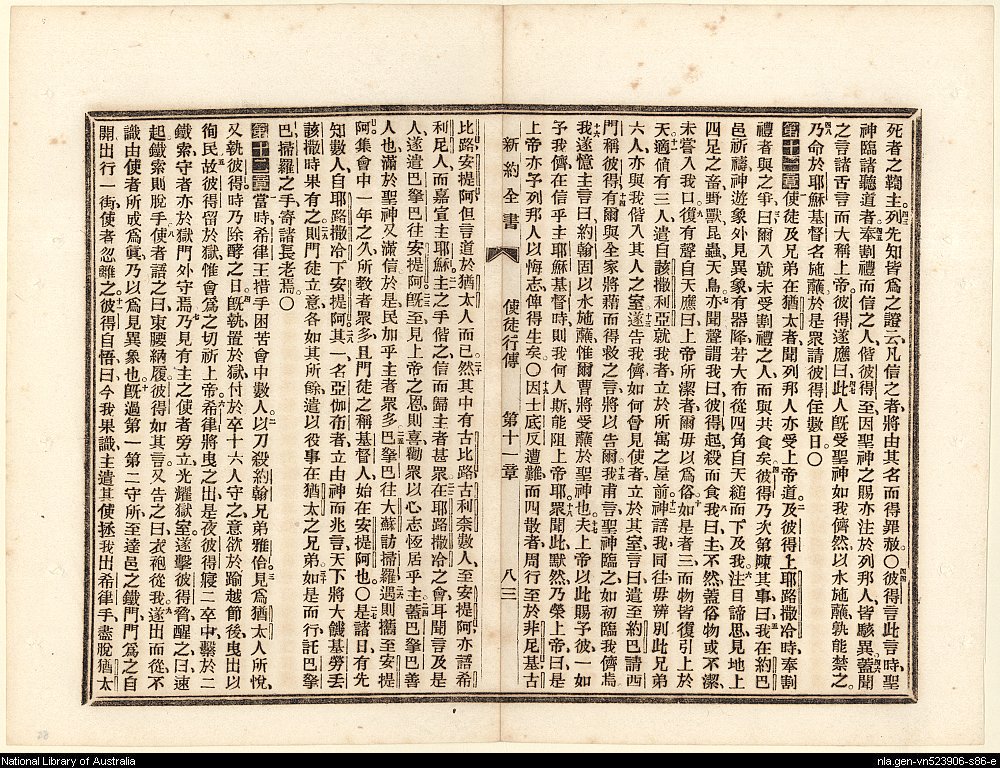 死者之鞫主列先知皆爲之證云凡信之者將由其名而得罪赦〇彼得言此言時聖
神臨諸聽道者奉割禮而信之人偕彼得至因聖神之賜亦注於列邦人皆駭異蓋聞
之言諸舌言而大稱上帝彼得遂應曰此人旣受聖神如我儕然以水施蘸孰能禁之
乃命於耶穌基督名施蘸於是衆請彼得住數日〇
第十一章使徒及兄弟在猶太者聞列邦人亦受上帝道及彼得上耶路撒冷時奉割
禮者與之爭曰爾入就未受割禮之人而與共食矣彼得乃次第陳其事曰我在約巴
邑祈禱神遊象外見異象有器降若大布從四角自天縋而下及我注目諦思見地上
四足之畜野獸昆蟲天鳥亦聞聲謂我曰彼得起殺而食我曰主不然蓋俗物或不潔
未嘗入我口復有聲自天應曰上帝所潔者爾毋以爲俗如是者三而物皆復引上於
天適値有三人遣自該撒利亞就我者立於所寓之屋前神語我同往毋辨別此兄弟
六人亦與我偕入其人之室遂告我儕如何曾見使者立於其室言曰遣至約巴請西
門稱彼得有爾與全家將藉而得救之言將以告爾我甫言聖神臨之如初臨我儕焉
我遂憶主言曰約翰固以水施蘸惟爾曹將受蘸於聖神也夫上帝以此賜予彼一如
予我儕在信乎主耶穌基督時則我何人斯能阻上帝耶衆聞此默然乃榮上帝曰是
上帝亦予列邦人以悔志俾得生矣〇因士底反遭難而四散者周行至於非尼基古
新約全書 使徒行傳 第十一章 八三
比路安提阿但言道於猶太人而已然其中有古比路古利奈數人至安提阿亦語希
利尼人而嘉宣主耶穌主之手偕之信而歸主者甚衆在耶路撒冷之會耳聞言及是
人遂遣巴拏巴往安提阿旣至見上帝之恩則喜勸衆以心志恆居乎主蓋巴拏巴善
人也滿於聖神又滿信於是民加乎主者衆多巴拏巴往大蘇訪掃羅遇則攜至安提
阿集會中一年之久所教者衆多且門徒之稱基督人始在安提阿也〇是諸日有先
知數人自耶路撒冷下安提阿其一名亞伽布者立由神而兆言天下將大饑基勞丟
該撒時果有之則門徒立意各如其所餘遣以役事在猶太之兄弟如是而行託巴拏
巴掃羅之手寄諸長老焉〇
第十二章當時希律王措手困苦會中數人以刀殺約翰兄弟雅伯見爲猶太人所悅
又執彼得時乃除酵之日旣執置於獄付於卒十六人守之意欲於踰越節後曳出以
徇民故彼得留於獄惟會爲之切祈上帝希律將曳之出是夜彼得寢二卒中繫於二
鐵索守者亦於獄門外守焉乃見有主之使者旁立光耀獄室遂擊彼得脅醒之曰速
起鐵索則脫手使者語之曰束腰納履彼得如其言又告之曰衣袍從我遂出而從不
識由使者所成爲眞乃以爲見異象也旣過第一第二守所至達邑之鐵門門爲之自
開出行一街使者忽離之彼得自悟曰今我果識主遣其使拯我出希律手盡脫猶太
National Library of Australia
nla.gen-vn523906-s86-e